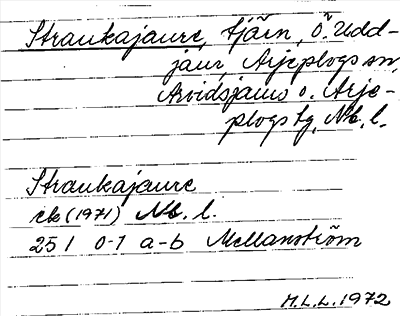 Straukajaure, tjärn, Ö. Udd-
jaur, Arjeplogs sn,
Arvidsjaurs o. Arje-
plogs tg, Nb. l.
Straukajaure
rb (1971) Nb. l.
25 I 0-1 a-b
M.L.L. 1972